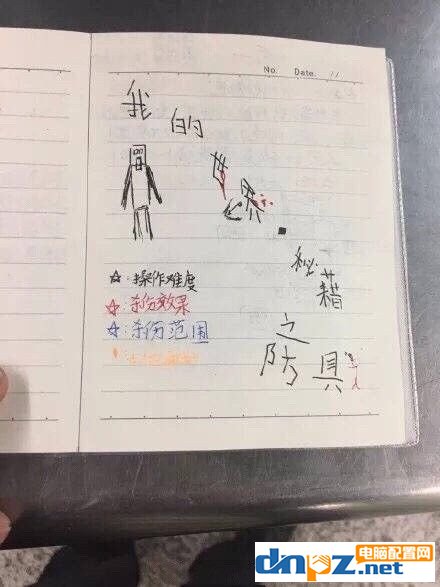 No. Date. / /
我的
世界.
秘藉
之
防具
☆:操作难度
☆:杀伤效果
☆:杀伤范围
电脑配置网
dnpz.net